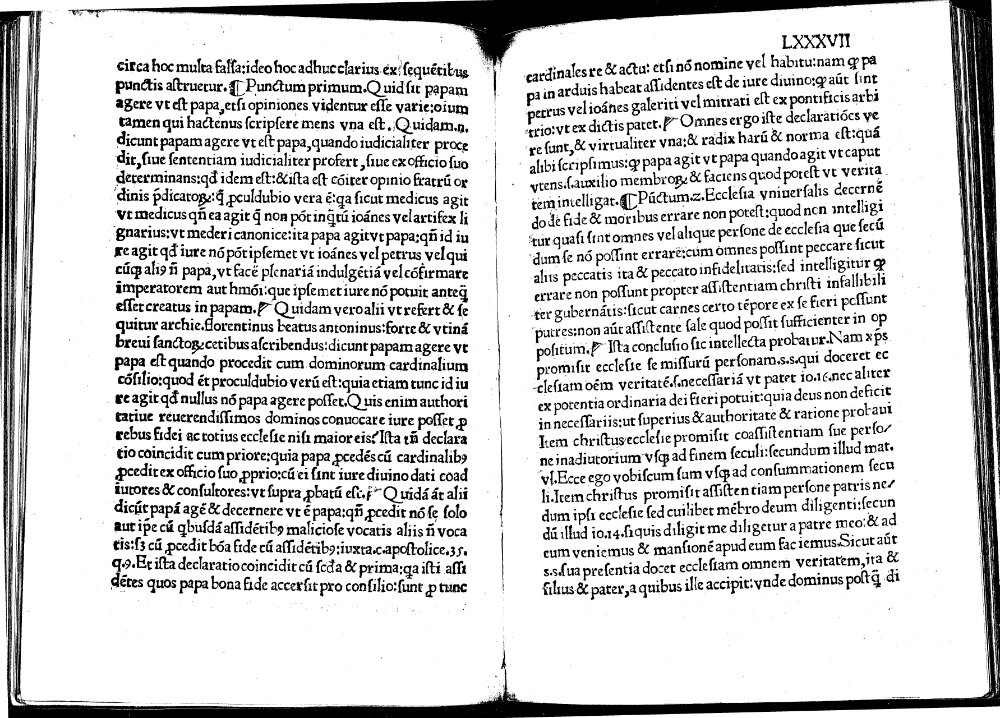 circa hoc multa falſa: ideo hoc adhuc clarius ex ſequētibus
punctis aſtruetur. ¶ Punctum primum. Quid ſit papam
agere vt eſt papa, etſi opiniones videntur eſſe varie: oīum
tamen qui hactenus ſcripſere mens vna eſt. Quidam.n.
dicunt papam agere vt eſt papa, quando iudicialiter proce
dit, ſiue ſententiam iudicialiter profert, ſiue ex officio ſuo
determinans: qđ idem eſt: & iſta eſt cōiter opinio fratrū or
dinis p̄dicatoꝝ: q̄ ꝓculdubio vera ē: q̄a ſicut medicus agit
vt medicus qn̄ ea agit q̄ non pōt inq̄tū ioānes vel artifex li
gnarius: vt mederi canonice: ita papa agit vt papa: qn̄ id iu
re agit qđ iure nō pōt ipſemet vt ioānes vel petrus vel qui
cūqꝫ aliꝰ n̄ papa, vt facē plenariā indulgētiā vel cōfirmare
imperatorem aut hmōi: que ipſemet iure nō potuit anteq̄
eſſet creatus in papam. ¶ Quidam vero alii vt refert & ſe
quitur archie. florentinus beatus antoninus: forte & vtinā
breui ſanctoꝝ cetibus aſcribendus: dicunt papam agere vt
papa eſt quando procedit cum dominorum cardinalium
cōſilio: quod ēt proculdubio verū eſt: quia etiam tunc id iu
re agit qđ nullus nō papa agere poſſet. Quis enim authori
tatiue reuerendiſſimos dominos conuocare iure poſſet ꝓ
rebus fidei ac totius eccleſie niſi maior eis? Iſta tn̄ declara
tio coincidit cum priore: quia papa ꝓcedēs cū cardinalibꝰ
ꝓcedit ex officio ſuo ꝓprio: cū ei ſint iure diuino dati coad
iutores & conſultores: vt ſupra ꝓbatū eſt. ¶ Quidā āt alii
dicūt papā agē & decernere vt ē papa: qn̄ ꝓcedit nō ſe ſolo
aut ip̄e cū qbuſdā aſſidētibꝰ malicioſe vocatis aliis n̄ voca
tis: ſꝫ cū ꝓcedit bōa fide cū aſſidētibꝰ: iuxta.c. apoſtolice.35.
q.9. Et iſta declaratio coincidit cū ſcđa & prima: q̄a iſti aſſi
dētes quos papa bona fide accerſit pro conſilio: ſunt ꝓ tunc
LXXXVII
cardinales re & actu: etſi nō nomine vel habitu: nam qꝫ pa
pa in arduis habeat aſſidentes eſt de iure diuino: qꝫ aūt ſint
petrus vel ioānes galeriti vel mitrati eſt ex pontificis arbi
trio: vt ex dictis patet. ¶ Omnes ergo iſte declaratiōes ve
re ſunt, & virtualiter vna; & radix harū & norma eſt: quā
alibi ſcripſimus: qꝫ papa agit vt papa quando agit vt caput
vtens.ſ. auxilio membroꝝ & faciens quod poteſt vt verita
tem intelligat. ¶ Pūctum.2. Eccleſia vniuerſalis decernē
do de fide & moribus errare non poteſt: quod non intelligi
tur quaſi ſint omnes vel alique perſone de eccleſia que ſecū
dum ſe nō poſſint errare: cum omnes poſſint peccare ſicut
aliis peccatis ita & peccato infidelitatis: ſed intelligitur qꝫ
errare non poſſunt propter aſſiſtentiam chriſti infallibili
ter gubernātis: ſicut carnes certo tēpore ex ſe fieri poſſunt
putres: non aūt aſſiſtente ſale quod poſſit ſufficienter in op
poſitum. ¶ Iſta concluſio ſic intellecta probatur. Nam xp̄s
promiſit eccleſie ſe miſſurū perſonam.s.s. qui doceret ec
cleſiam oēm veritatē.ſ. neceſſariā vt patet io.16. nec aliter
ex potentia ordinaria dei fieri potuit: quia deus non deficit
in neceſſariis: ut ſuperius & authoritate & ratione probaui
Item chriſtus eccleſie promiſit coaſſiſtentiam ſue perſo/
ne in adiutorium vſqꝫ ad finem ſeculi: ſecundum illud mat.
vl. Ecce ego vobiſcum ſum vſqꝫ ad conſummationem ſecu
li. Item chriſtus promiſit aſſiſtentiam perſone patris ne/
dum ipſi eccleſie ſed cuilibet mēbro deum diligenti: ſecun
dū illud io.14. ſi quis diligit me diligetur a patre meo: & ad
eum veniemus & manſionē apud eum faciemus. Sicut aūt
s.s. ſua preſentia docet eccleſiam omnem veritatem, ita &
filius & pater, a quibus ille accipit: vnde dominus poſtq̄ di